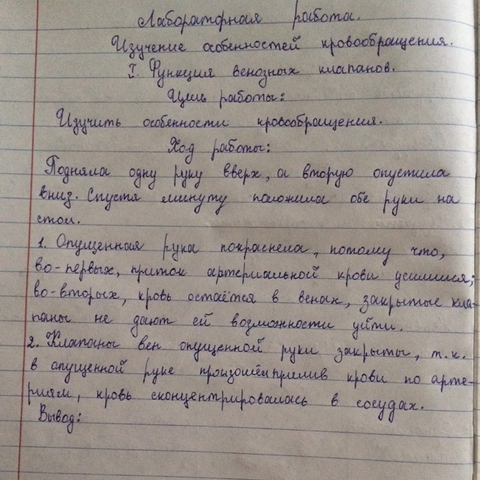 Лабораторная работа.
Изучение особенностей кровообращения.
I. Функция венозных клапанов.
Цель работы:
Изучить особенности кровообращения.
Ход работы:
Подняла одну руку вверх, а вторую опустила
вниз. Спустя минуту положила обе руки на
стол.
1. Опущенная рука покраснела, потому что,
во-первых, приток артериальной крови усилился;
во-вторых, кровь остаётся в венах, закрытые кла-
паны не дают ей возможности уйти.
2. Клапаны вен опущенной руки закрыты, т.к.
в опущенной руке произошёл прилив крови по арте-
риям, кровь сконцентрировалась в сосудах.
Вывод: